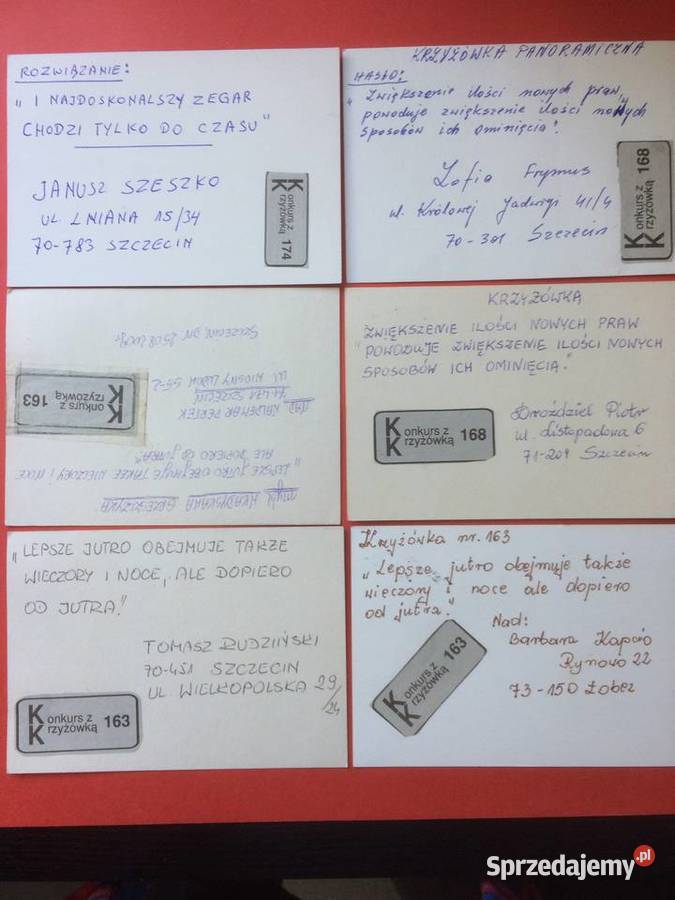 ROZWIĄZANIE:
„I NAJDOSKONALSZY ZEGAR
CHODZI TYLKO DO CZASU”
JANUSZ SZESZKO
UL LNIANA 15/34
70-783 SZCZECIN
Konkurs z
Krzyżówką 174
KRZYŻÓWKA PANORAMICZNA
HASŁO:
„Zwiększenie ilości nowych praw,
powoduje zwiększenie ilości nowych
sposobów ich ominięcia”.
Zofia Frymus
ul. Królowej Jadwigi 41/4
70-301 Szczecin
Konkurs z
Krzyżówką 168
SZCZECIN, DN. 25.08.2004r.
Konkurs z
Krzyżówką 163
MYŚL WŁADYSŁAWA GRZESZCZYKA
„LEPSZE JUTRO OBEJMUJE TAKŻE WIECZORY I NOCE
ALE DOPIERO OD JUTRA”
WALDEMAR PERTEK
SZCZECIN
UL. WIOSNY LUDÓW 55-2
KRZYŻÓWKA
„ZWIĘKSZENIE ILOŚCI NOWYCH PRAW
POWODUJE ZWIĘKSZENIE ILOŚCI NOWYCH
SPOSOBÓW ICH OMINIĘCIA.”
Konkurs z
Krzyżówką 168
Droździel Piotr
ul. Listopadowa 6
71-201 Szczecin
„LEPSZE JUTRO OBEJMUJE TAKŻE
WIECZORY I NOCE, ALE DOPIERO
OD JUTRA!”
TOMASZ RUDZIŃSKI
70-451 SZCZECIN
UL. WIELKOPOLSKA 29/24
Konkurs z
Krzyżówką 163
Krzyżówka nr. 163
„Lepsze jutro obejmuje także
wieczory i noce ale dopiero
od jutra.”
Nad:
Barbara Kapcio
Rynowo 22
73-150 Łobez
Konkurs z
Krzyżówką 163
Sprzedajemy.pl